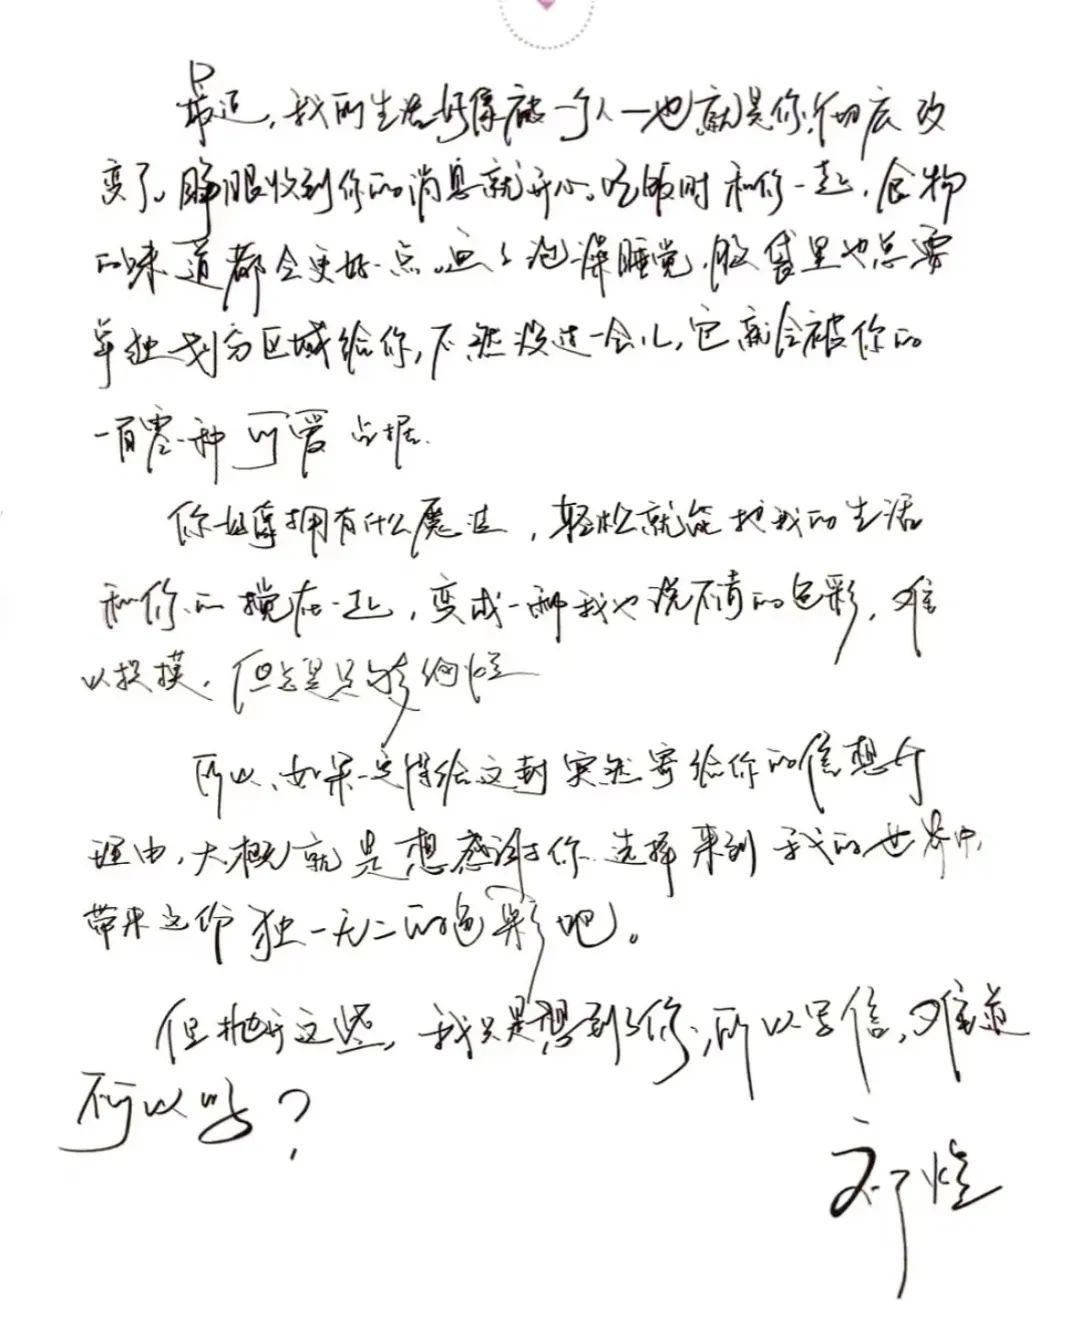 最近，我的生活好像被一个人—也就是你，彻底改
变了。睁眼收到你的消息就开心。吃饭时和你一起，食物
的味道都会更好一点。洗了泡澡睡觉，脑袋里也总要
单独划分区域给你，不然没过一会儿，它就会被你的
一百零一种可爱占据.
你好像拥有什么魔法，轻松就能把我的生活
和你的搅在一起，变成一种我也说不清的色彩，难
以捉摸，但总是只多绚烂
所以，如果一定得给这封突然寄给你的信想个
理由，大概就是想感谢你选择来到我的世界中，
带来这份独一无二的色彩吧。
但抛开这些，我只是想到了你，所以写信，难道
不可以吗？